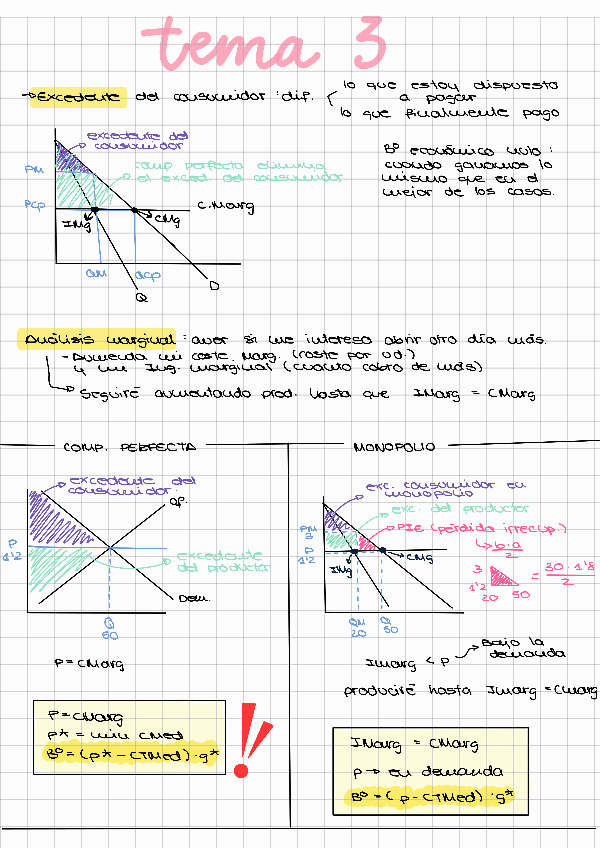 tema 3
→ Excedente del consumidor : dif. lo que estoy dispuesto
a pagar
lo que finalmente pago
excedente del
consumidor
comp. perfecta elimina
el exced. del consumidor
PM
Pcp
IMg
CMg
C.Marg
QM
Qcp
Q
D
Bº económico nulo :
cuando ganamos lo
mismo que en el
mejor de los casos.
Análisis marginal : a ver si me interesa abrir otro día más.
- Aumenta mi coste Marg. (coste por ud.)
y mi Ing. marginal (cuanto cobro de más)
→ Seguiré aumentando prod. hasta que IMarg = CMarg
COMP. PERFECTA
excedente del
consumidor
Of.
P
1'2
excedente
del productor
Dem.
Q
50
P = CMarg
P = CMarg
p* = min CMed
Bº = (p* - CTMed) · q*
MONOPOLIO
exc. consumidor en
monopolio
exc. del productor
PIE (pérdida irrecup.)
b·a
2
PM
3
P
1'2
IMg
CMg
QM
20
Q
50
3
1'2
20 50
= 30 · 1'8
2
IMarg < P
Bajo la
demanda
produciré hasta IMarg = CMarg
IMarg = CMarg
P → en demanda
Bº = (p - CTMed) · q*